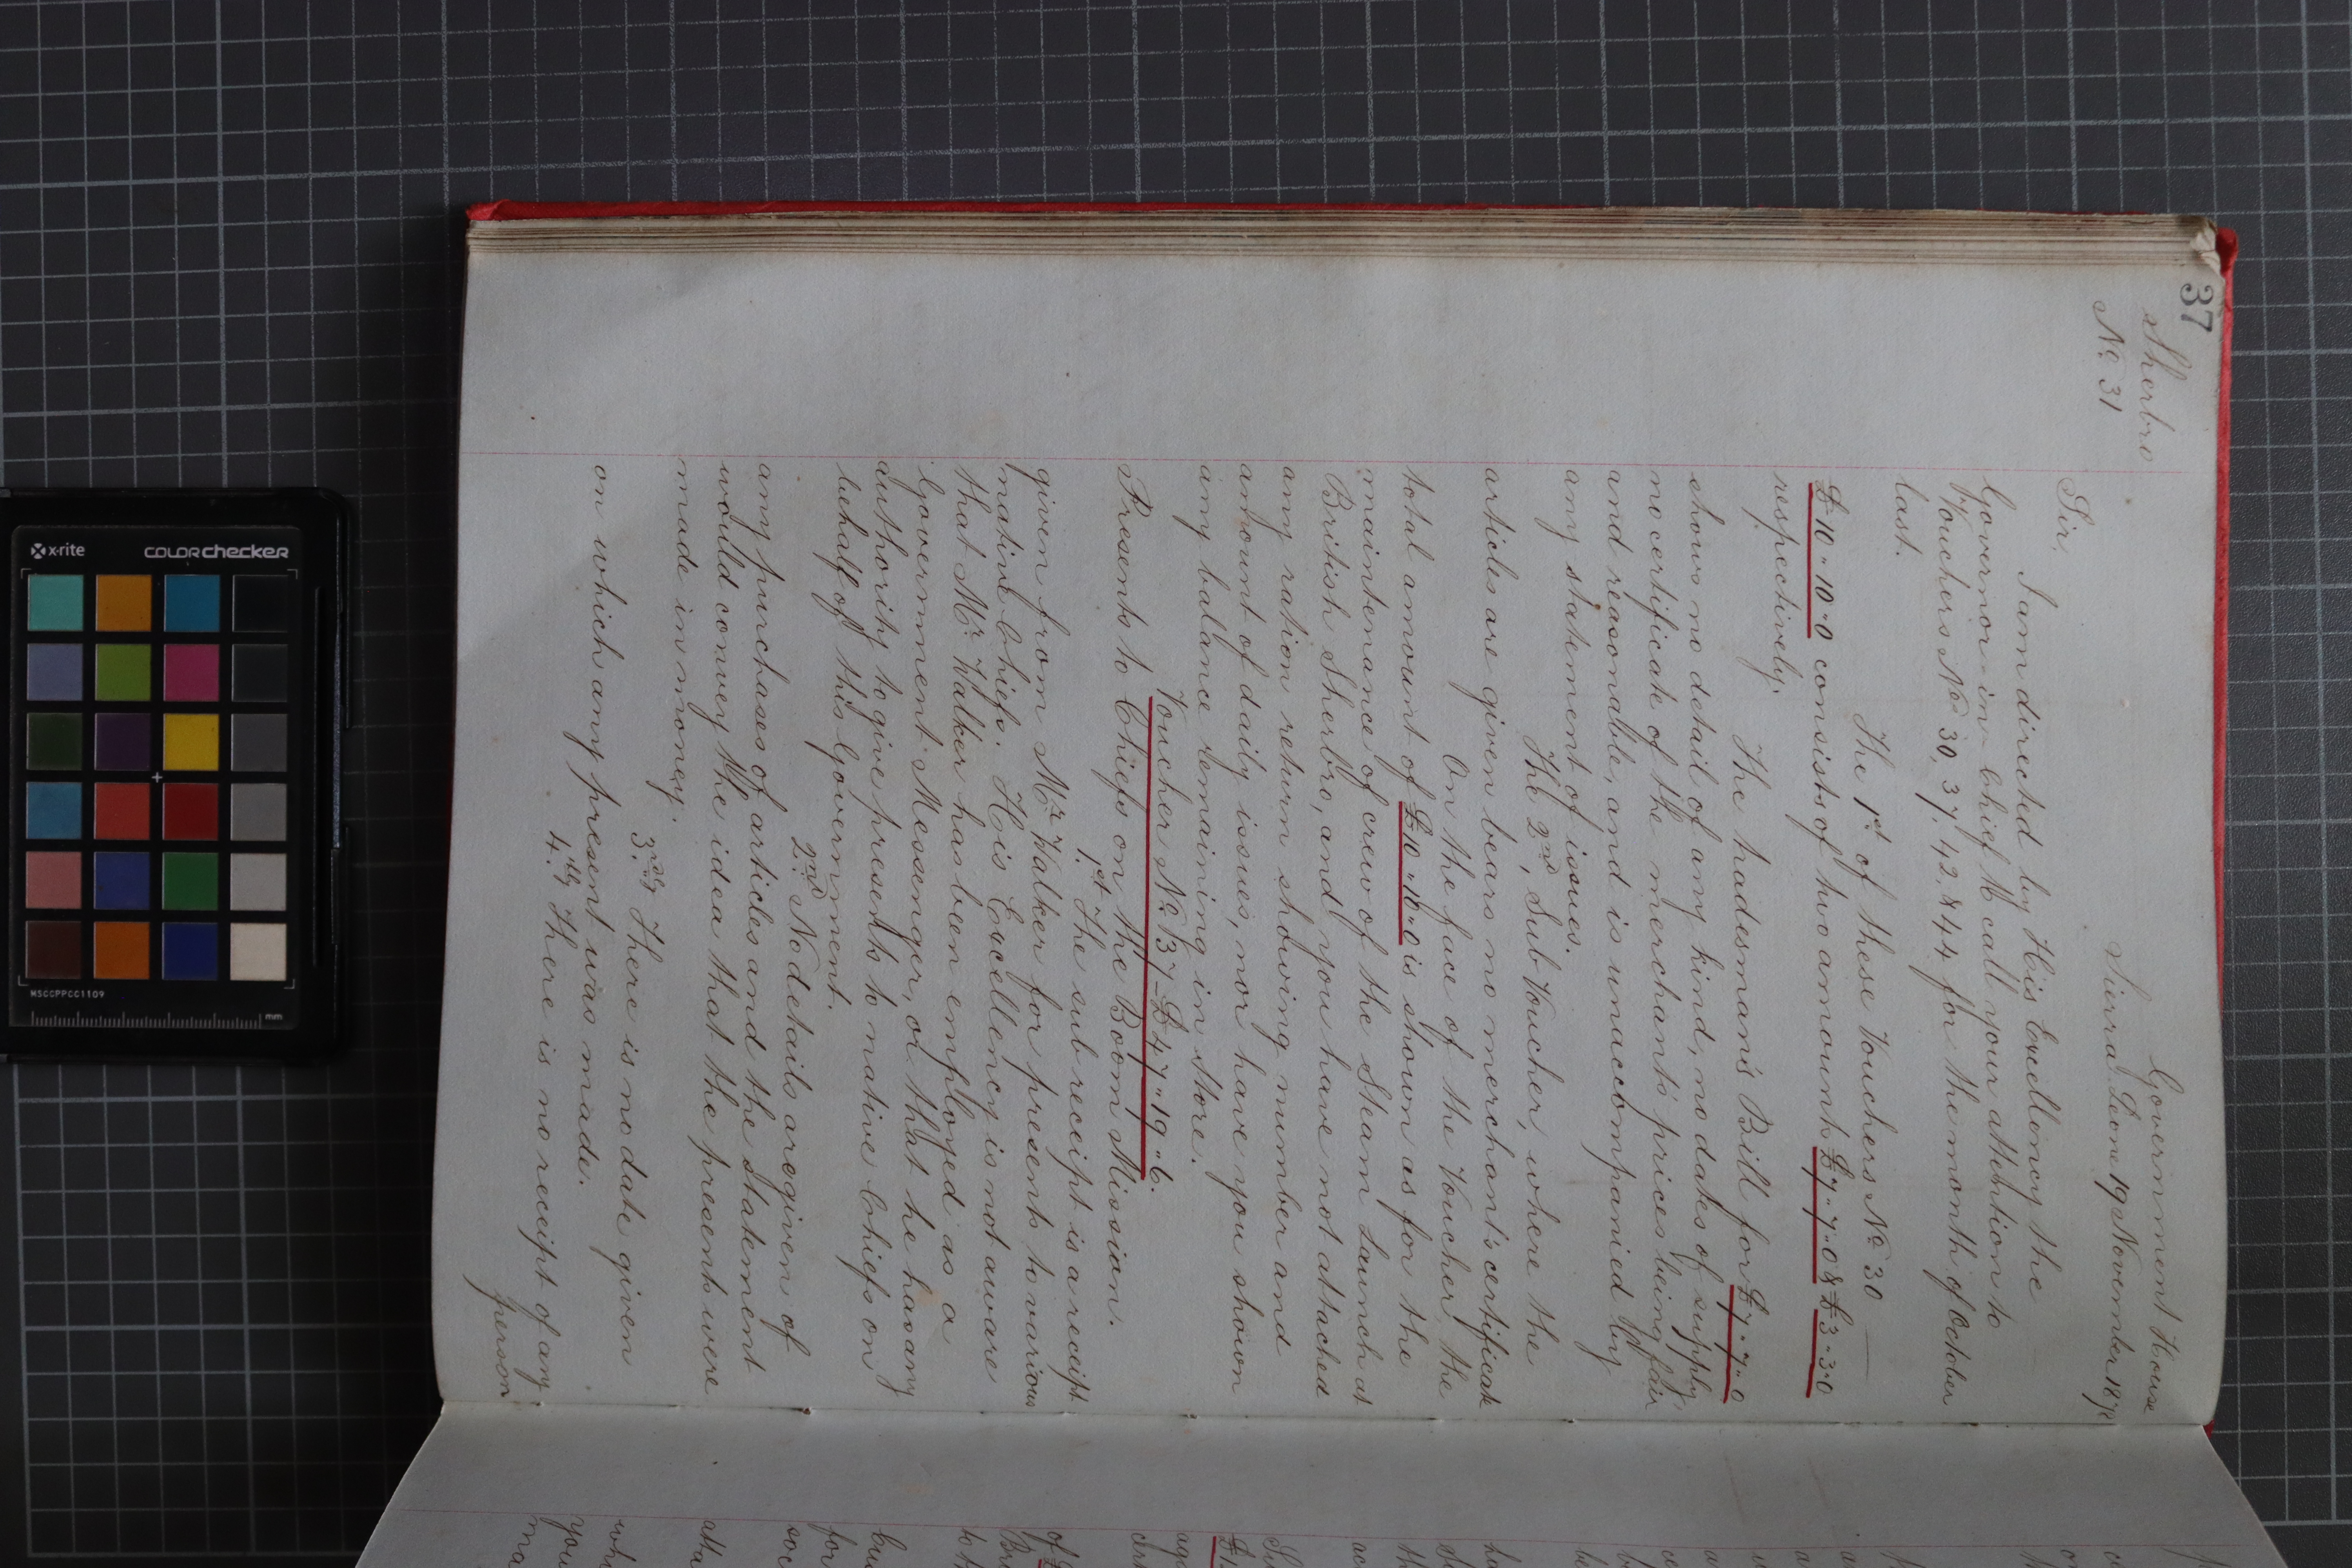 37
Sherbro
No. 31
Government House
Sierra Leone 19 November 1878
Sir,
I am directed by His Excellency the
Governor-in-Chief to call your attention to
Vouchers Nos 30, 37, 42, & 44 for the month of October
last.
The 1st of these Vouchers No. 30
£10"10"0 consists of two amounts £7"7"0 & £3"3"0
respectively.
The tradesman's Bill for £7"7"0
shows no detail of any kind, no dates of supply,
no certificate of the merchant's prices being fair
and reasonable, and is unaccompanied by
any statement of issues.
The 2nd, Sub Voucher, where the
articles are given bears no merchant's certificate
On the face of the Voucher, the
total amount of £10"10"0 is shown as for the
maintenance of crew of the Steam Launch at
British Sherbro, and you have not attached
any ration return showing number and
amount of daily issues, nor have you shown
any balance remaining in store.
Voucher No. 37 - £47"19"6.
Presents to Chiefs on the Boom Mission.
1st The sub receipt is a receipt
given from Mr. Walker for presents to various
native Chiefs. His Excellency is not aware
that Mr. Walker has been employed as a
Government Messenger, or that he has any
authority to give presents to native Chiefs on
behalf of this Government.
2nd No details are given of
any purchases of articles and the statement
would convey the idea that the presents were
made in money.
3rdly There is no date given
on which any present was made.
4.thly There is no receipt of any
person
x-rite
colorchecker
MSCCPPCC1109
mm